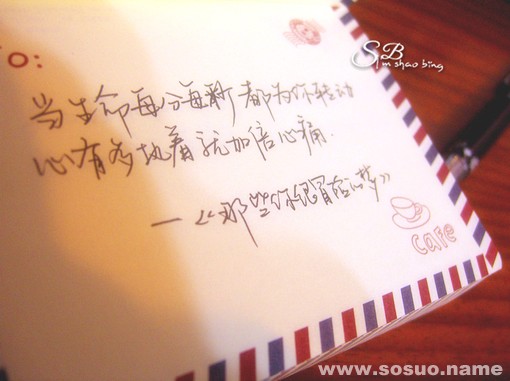 O:
SB
m shao bing
当生命每分每都为你转动
心有多执着就加倍心痛.
—《那些你很冒险的梦》
cafe
www.sosuo.name